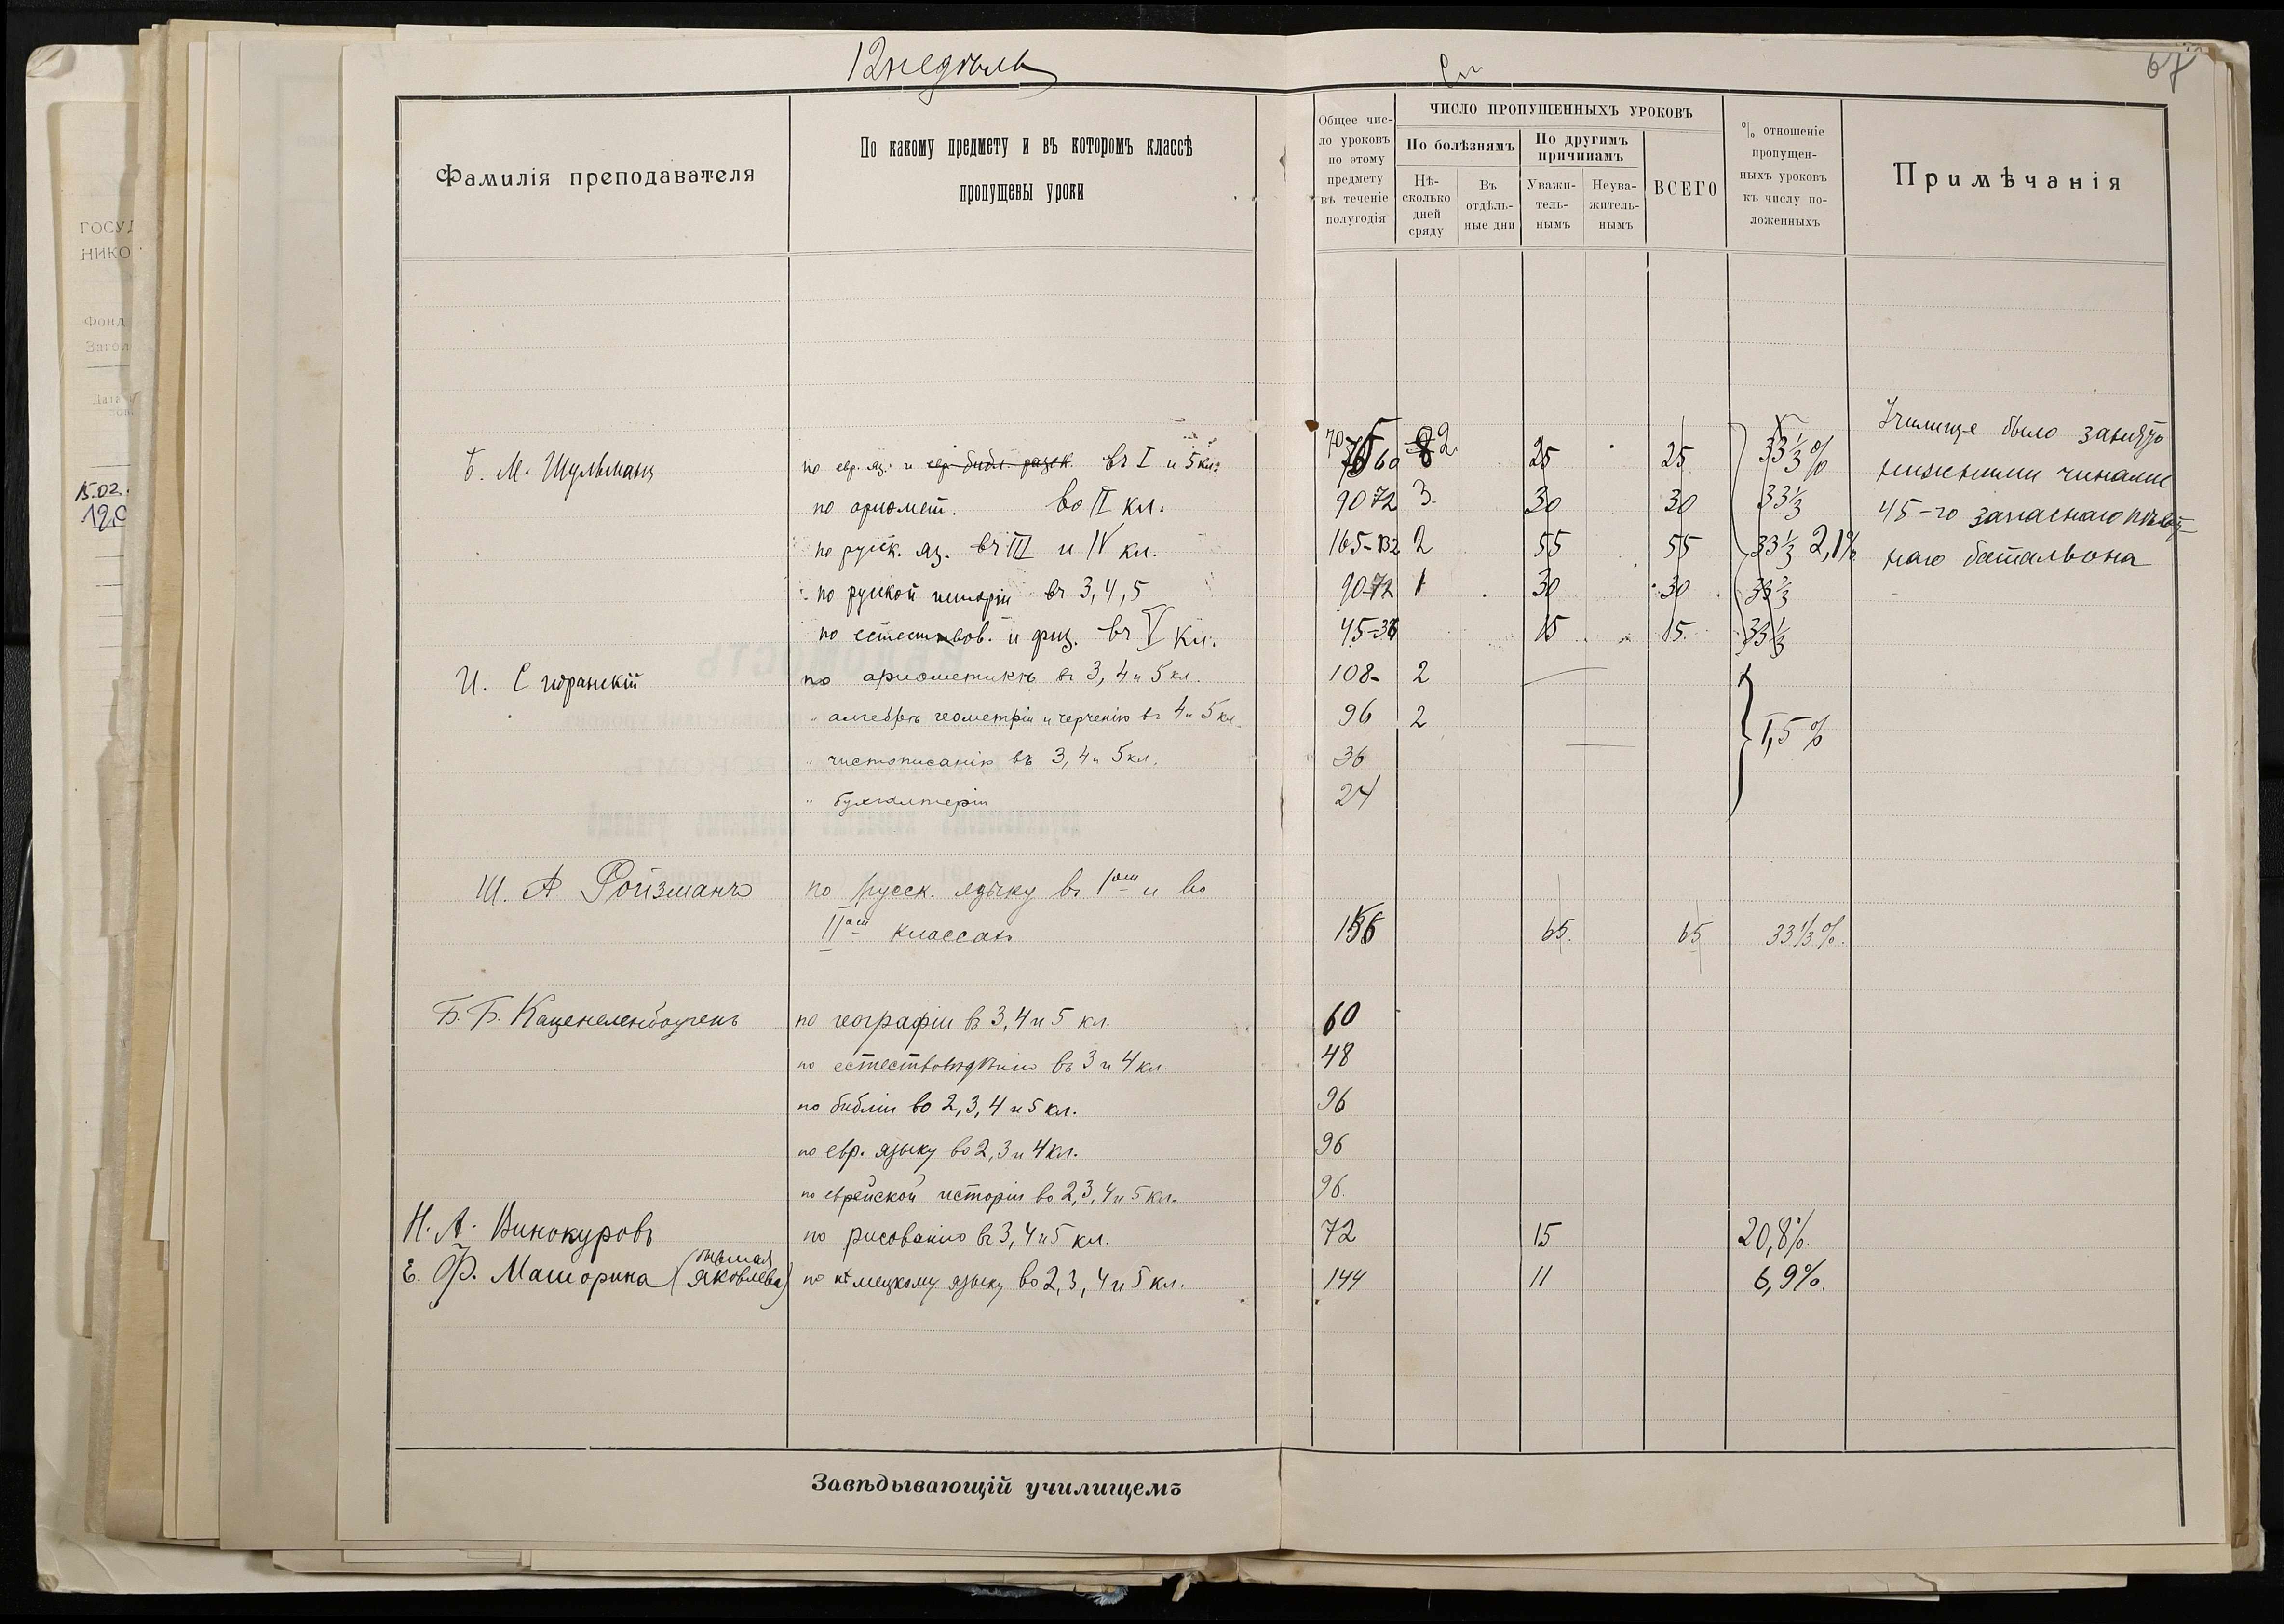 12 недѣль
67
Фамилія преподавателя
По какому предмету и въ которомъ классѣ
пропущены уроки
Общее чис-
ло уроковъ
по этому
предмету
въ теченіе
полугодія
ЧИСЛО ПРОПУЩЕННЫХЪ УРОКОВЪ
По болѣзнямъ
По другимъ
причинамъ
Нѣ-
сколько
дней
сряду
Въ
отдѣль-
ные дни
Уважи-
тель-
нымъ
Неува-
житель-
нымъ
ВСЕГО
% отношеніе
пропущен-
ныхъ уроковъ
къ числу по-
ложенныхъ
Примѣчанія
Б. М. Шульманъ по евр. яз. и евр. библ. разск. въ I и 5 кл. 70 60 2 25 25 33 1/3 %
по ариѳмет. во II кл. 90 72 3. 30 30 33 1/3
по русск. яз. въ III и IV кл. 165-132 2 55 55 33 1/3 2,1%
по русской исторіи въ 3, 4, 5 90-72 1 30 30 33 1/3
по естествов. и физ. въ V кл. 45-36 15 15. 33 1/3
Училище было занято
нижними чинами
45-го запаснаго
наго баталіона
И. С по ариѳметикѣ въ 3, 4 и 5 кл. 108- 2
" алгебрѣ геометріи и черченію въ 4 и 5 кл. 96 2 1,5 %
" чистописанію въ 3, 4 и 5 кл. 36
" бухгалтеріи 24
Ш. А Ройзманъ по русск. языку въ 1омъ и во
IIомъ классахъ 156 65. 65 33 1/3 %.
Б. Б. Каценеленбогенъ по географіи въ 3, 4 и 5 кл. 60
по естествовѣдѣнію въ 3 и 4 кл. 48
по библіи во 2, 3, 4 и 5 кл. 96
по евр. языку во 2, 3 и 4 кл. 96
по еврейской исторіи во 2, 3, 4 и 5 кл. 96.
Н. А. Винокуровъ по рисованію въ 3, 4 и 5 кл. 72 15 20,8%.
Е. Ф. Машорина (бывшая Яковлева) по нѣмецкому языку во 2, 3, 4 и 5 кл. 144 11 6,9%.
Завѣдывающій училищемъ
ГОСУД
НИКО
Фонд
15.02.